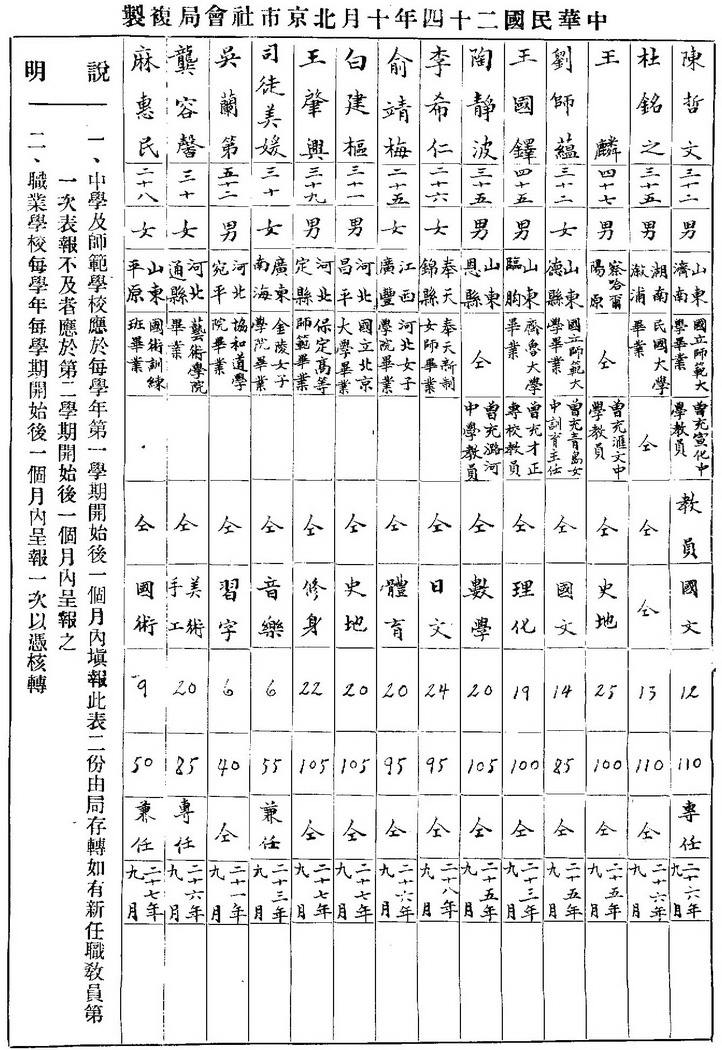 中華民國二十四年十月北京市社會局複製
陳哲文 三十二 男 山東濟南 國立師範大學畢業 曾充宣化中學教員 教員 國文 12 110 專任 二十六年九月
杜銘之 三十五 男 湖南漵浦 民國大學畢業 仝 仝 仝 13 110 仝 二十六年九月
王麟 四十七 男 察哈爾陽原 曾充滙文中學教員 仝 史地 25 100 仝 二十五年九月
劉師蘊 三十二 女 山東德縣 國立師範大學畢業 曾充青島女中訓育主任 仝 國文 14 85 仝 二十五年九月
王國鐸 四十五 男 山東臨朐 齊魯大學畢業 曾充才正專校教員 仝 理化 19 100 仝 二十三年九月
陶靜波 三十五 男 山東恩縣 仝 曾充潞河中學教員 仝 數學 20 105 仝 二十五年九月
李希仁 二十六 女 奉天錦縣 奉天新制女師畢業 仝 日文 24 95 仝 二十八年九月
俞靖梅 二十五 女 江西廣豐 河北女子學院畢業 仝 體育 20 95 仝 二十六年九月
白建樞 三十一 男 河北昌平 國立北京大學畢業 仝 史地 20 105 仝 二十七年九月
王肇興 三十九 男 河北定縣 保定高等師範畢業 仝 修身 22 105 仝 二十七年九月
司徒美媛 三十 女 廣東南海 金陵女子學院畢業 仝 音樂 6 55 兼任 二十三年九月
吳蘭第 五十二 男 河北宛平 協和道學院畢業 仝 習字 6 40 仝 二十一年九月
龔容馨 三十 女 河北通縣 藝術學院畢業 仝 美術手工 20 85 專任 二十六年九月
麻惠民 二十八 女 山東平原 國術訓練班畢業 仝 國術 9 50 兼任 二十七年九月
說明
一、中學及師範學校應於每學年第一學期開始後一個月內塡報此表二份由局存轉如有新任職教員第
一次表報不及者應於第二學期開始後一個月內呈報之
二、職業學校每學年每學期開始後一個月內呈報一次以憑核轉